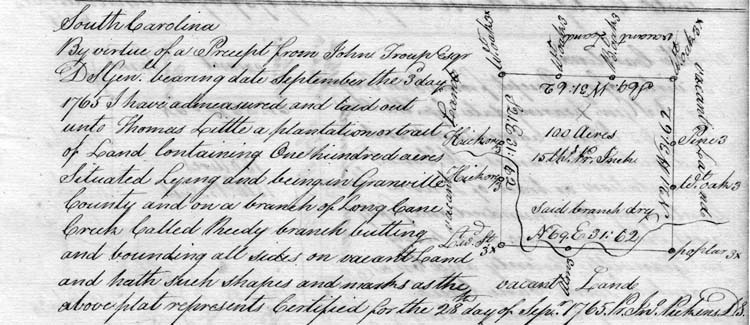 South Carolina
By virtue of a Precept from John Troup Esqr
D S Genl. bearing date September the 3 day
1765 I have admeasured and laid out
unto Thomas Little a plantation or tract
of Land Containing One hundred acres
Situated Lying and being in Granville
County and on a branch of Long Cane
Creek Called Reedy branch butting
and bounding all sides on vacant Land
and hath such shapes and marks as the
above plat represents Certified for the 28th day of Sepr. 1765 Pr. Jno. Pickens D.S.
vacant Land
vacant Land
Hickory 3
Hickory 3
S 69 W 31:62
S 21 E 31:62
100 Acres
15 Chs. Pr. Inch
N 21 W 31:62
Pine 3
vacant Land
Wt. oak 3
Said branch dry
N 69 E 31:62
poplar 3x
Elm 3
vacant Land